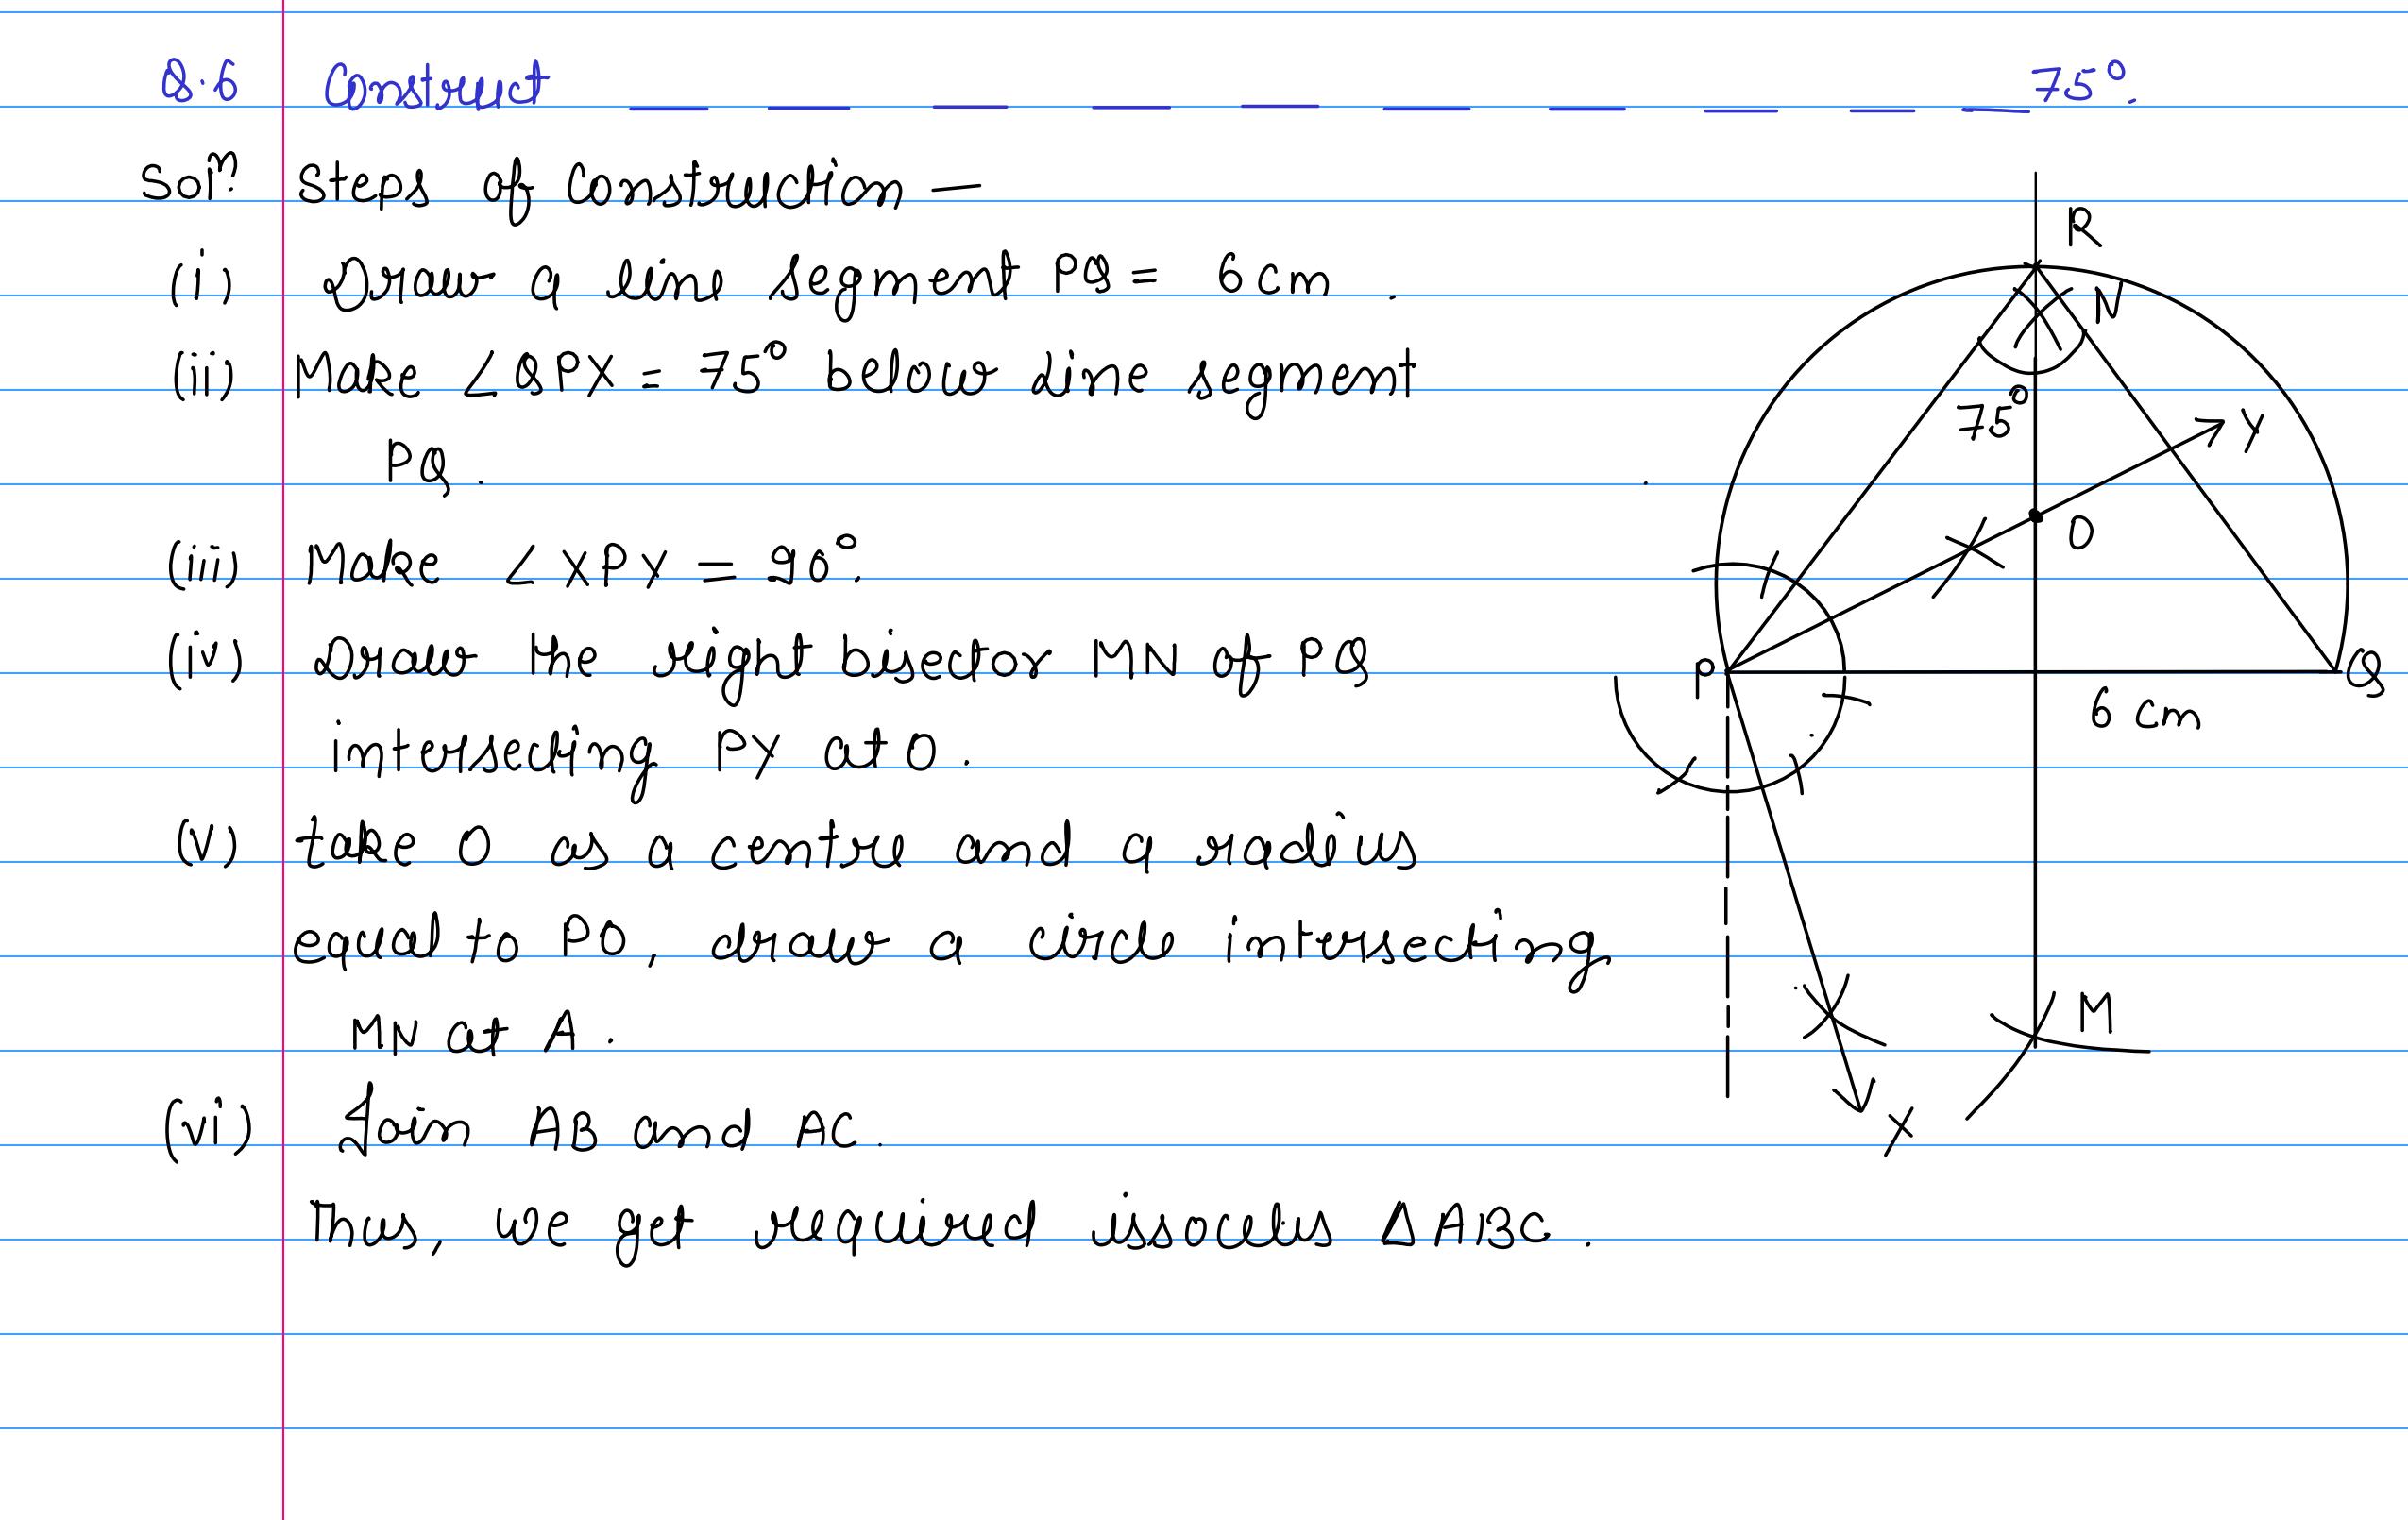 Q.6 Construct _ _ _ _ _ _ _ _ _ 75°.
Solⁿ. Steps of Construction —
(i) Draw a line segment PQ = 6 cm.
(ii) Make ∠QPX = 75° below line segment
PQ.
(iii) Make ∠XPY = 90°.
(iv) Draw the right bisector MN of PQ
intersecting PY at O.
(v) take O as a centre and a radius
equal to PO, draw a circle intersecting
MN at A.
(vi) Join AB and AC.
Thus, we get required issoceles ΔABC.
R
N
75°
Y
O
P
Q
6 cm
M
X